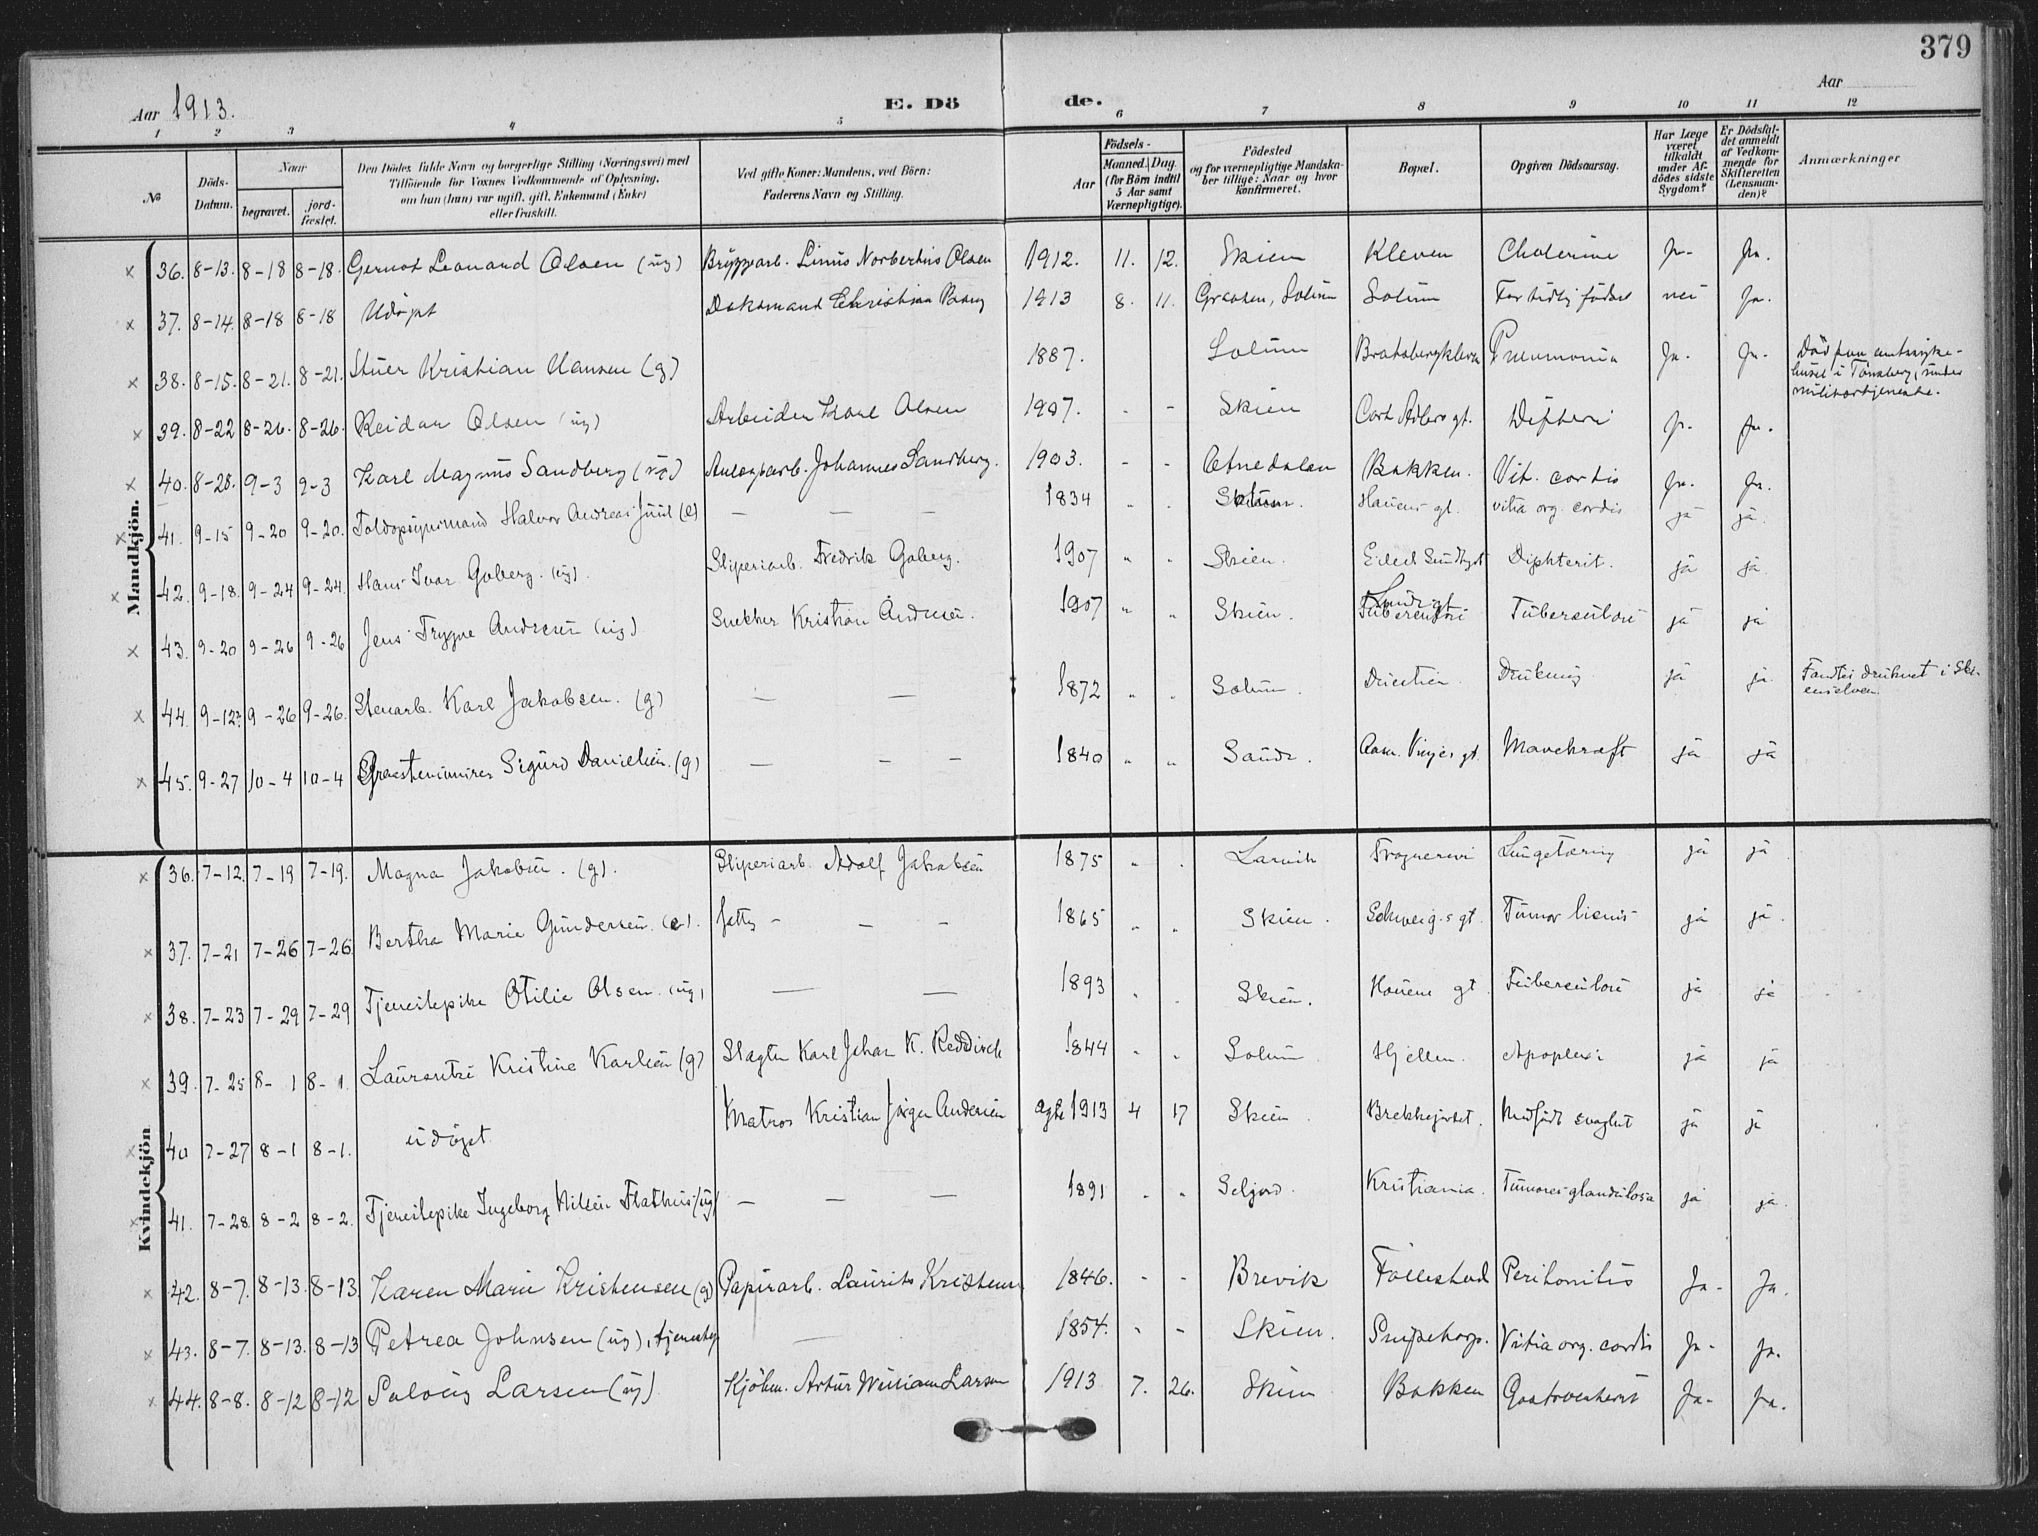 379
Aar 1913.
E. Dö de.
Aar
1 2 3 4 5 6 7 8 9 10 11 12
№
Döds-Datum.
Naar
begravet.
jord-fæstet.
Den Dödes fulde Navn og borgerlige Stilling (Næringsvei) med
Tilföiende for Voxnes Vedkommende af Oplysning,
om han (hun) var ugift, gift, Enkemand (Enke)
eller fraskilt.
Ved gifte Koner: Mandens, ved Börn:
Faderens Navn og Stilling.
Födsels-
Aar
Maaned. Dag.
(for Börn indtil
5 Aar samt
Værnepligtige).
Födested
og for værnepligtige Mandska-
ber tillige: Naar og hvor
Konfirmeret.
Bopæl.
Opgiven Dödsaarsag.
Har Læge
været
tilkaldt
under Af-
dödes sidste
Sygdom?
Er Dödsfal-
det anmeldt
af Vedkom-
mende for
Skifteretten
(Lensman-
den)?
Anmærkninger
Mandkjön.
36. 8-13. 8-18 8-18. Gernot Leonard Olsen (ug) Bryggearb. Linus Norbertus Olsen 1912. 11. 12. Skien Kleven Cholerine Ja. Ja.
37. 8-14. 8-18 8-18 Udöpt Doksmand Christian 1913 8. 11. Graaten, Solum Solum For tidlig födsel nei Ja.
38. 8-15. 8-21. 8-21. Stuer Kristian Hansen (g) 1887. Solum Bratsbergkleven Pneumonia Ja. Ja. Död paa amtssyke-
huset i Tönsberg, under
militærtjeneste.
39. 8-22 8-26. 8-26. Reidar Olsen (ug) Arbeider Karl Olsen 1907. - - Skien Cort Adlers gt. Difteri Ja. Ja.
40. 8-28. 9-3 9-3 Karl Magnus Sandberg (ug) Anlægsarb. Johannes Sandberg. 1903. - - Etnedalen Bakken. Vit. cordis Ja. Ja.
41. 9-15 9-20 9-20. Toldopsynsmand Halvor Andreas Juul (e) - - - 1834 Solum. Hauens gt. vitia org. cordis ja ja.
42. 9-18. 9-24 9-24. Hans Ivar Goberg. (ug). Sliperiarb. Fredrik Goberg. 1907 Skien. Eilert Sundtsgt Diphterit. ja ja.
43. 9-20 9-26 9-26 Jens Trygve Andresen (ug) Snekker Kristian Andresen. 1907 Skien. Tuberculose Lundegt Tuberculose ja ja
44. 9-12? 9-26 9-26. Stenarb. Karl Jakobsen. (g) - - 1872 Solum. Drukning ja ja. Fandtes druknet i Ski-
enselven.
45. 9-27 10-4 10-4 Sigurd Danielsen. (g) - - - 1840 Saude. Aasm. Vinjes gt. Mavekræft ja ja
Kvindekjön
36. 7-12. 7-19 7-19. Magna Jakobsen. (g). Sliperiarb. Adolf Jakobsen 1875 Larvik Lungetæring ja ja
37. 7-21 7-26 7-26. Bertha Marie Gundersen. (e). fattig - - - 1865 Skien. Schweig.s gt. Tumor lienis ja ja.
38. 7-23 7-29 7-29 Tjenestepike Otilie Olsen. (ug) - - 1893 Skien. Hauens gt. Tuberculose ja ja
39. 7-25 8-1 8-1. Laurantze Kristine Karlsen (g) Slagter Karl Johan K. 1844 Solum Hjellen. Apoplexi ja ja
40 7-27 8-1 8-1. udöpt. Matros Kristian Jörgen Andersen 1913 4 17 Skien. Brekkejordet. Medfödt svaghet ja ja
41. 7-28. 8-2 8-2. Tjenestepike Ingeborg Nilsen Flathus (ug) - - - 1891 Seljord. Kristiania. Tumores glandulosa ja ja.
42. 8-7. 8-13. 8-13 Karen Marie Kristensen (g) Papirarb. Laurits Kristensen 1846. - - Brevik Follestad Peritonitis Ja. Ja.
43. 8-7. 8-13. 8-13 Petrea Johnsen (ug), tjenestep. 1854. - - Skien. Snipetorp. Vitia org. cordis Ja. Ja.
44. 8-8. 8-12 8-12 Solveig Larsen (ug) Kjöbm. Artur William Larsen 1913 7. 26. Skien Bakken Gastroenterit Ja. Ja.